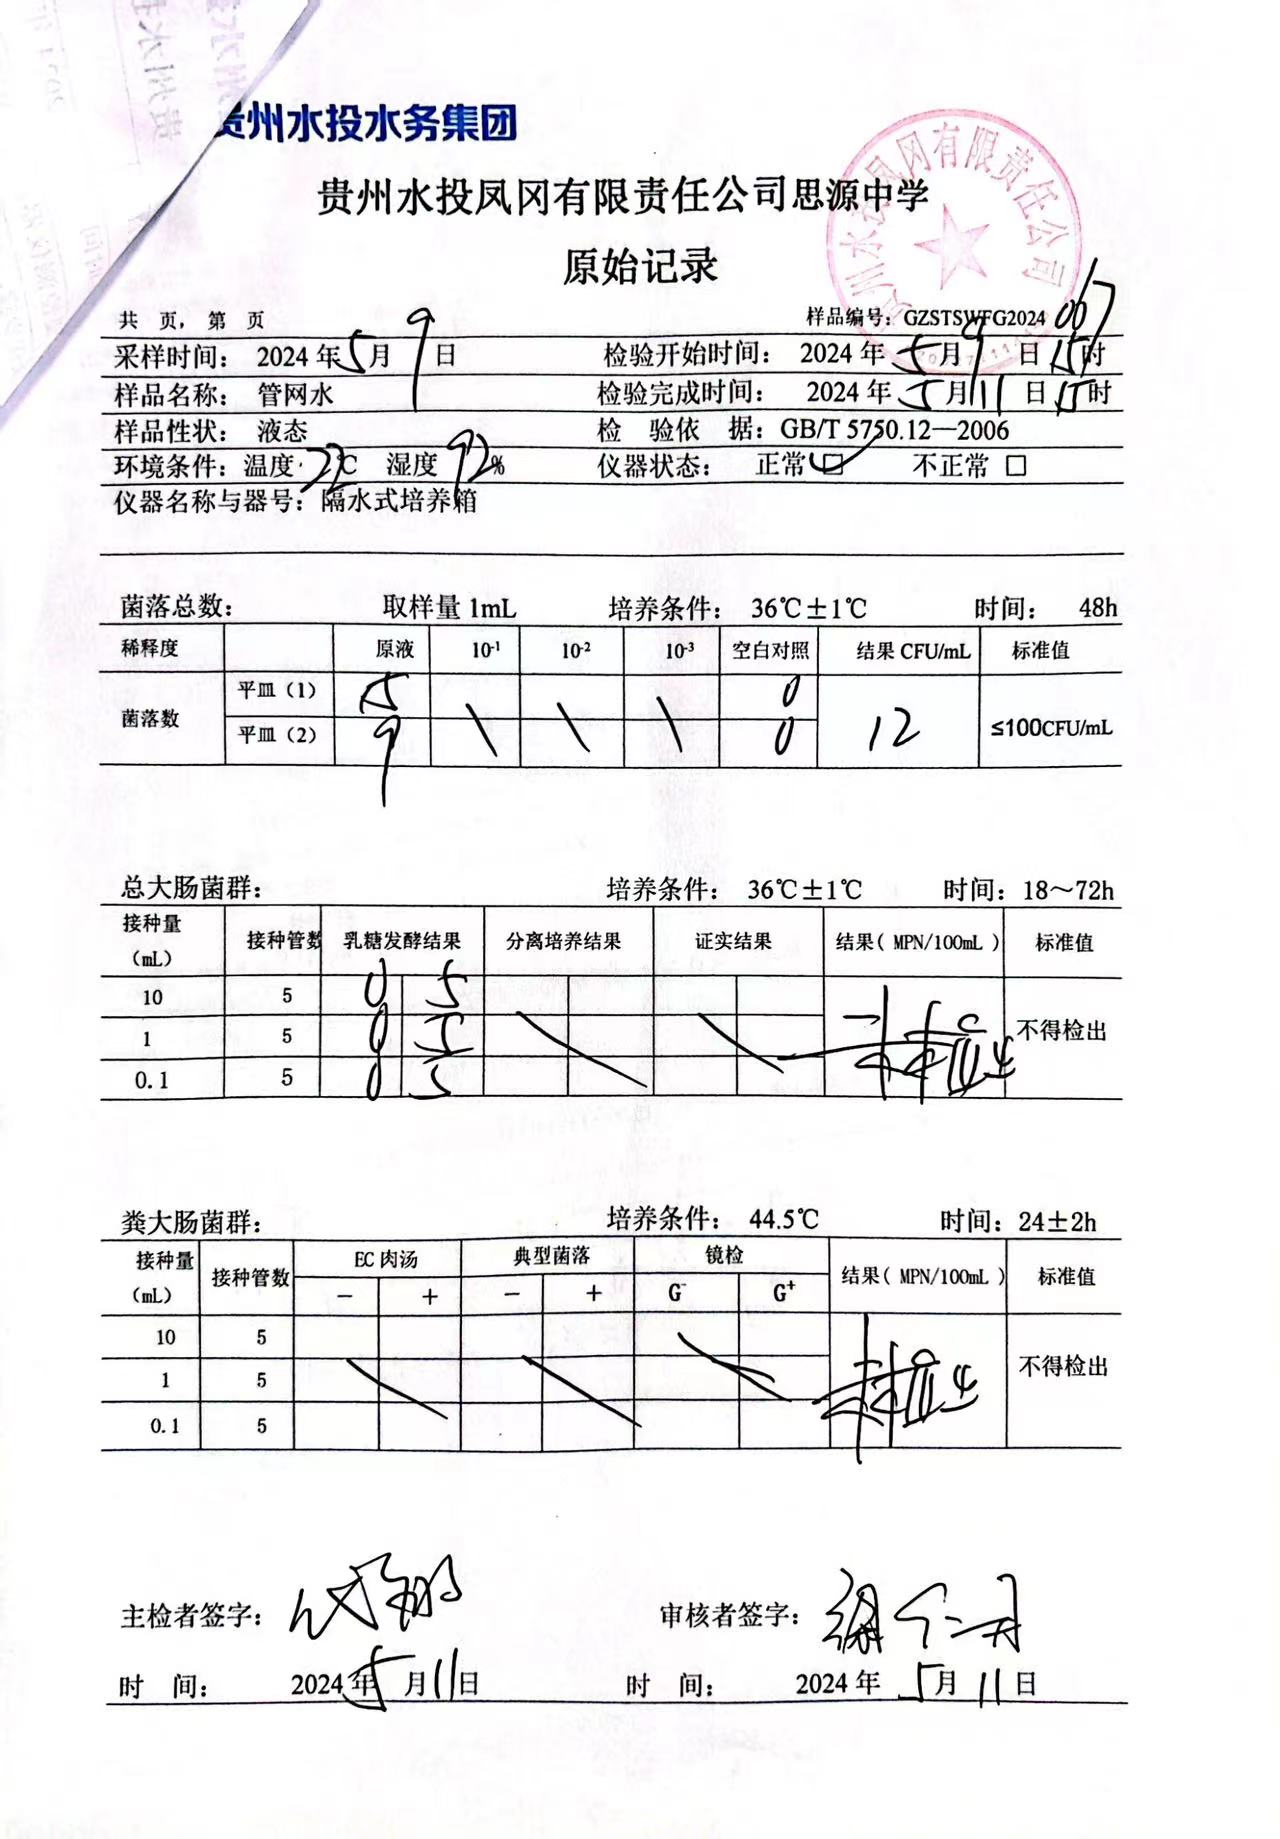 贵州水投水务集团
贵州水投凤冈有限责任公司
贵州水投凤冈有限责任公司思源中学
原始记录
共 页，第 页 样品编号：GZSTSWFG2024 067
采样时间： 2024 年 5 月 9 日 检验开始时间： 2024 年 5 月 9 日 15 时
样品名称： 管网水 检验完成时间： 2024 年 5 月 11 日 15 时
样品性状： 液态 检 验依 据：GB/T 5750.12—2006
环境条件：温度 22℃ 湿度 92% 仪器状态： 正常 ☑ 不正常 □
仪器名称与器号：隔水式培养箱
菌落总数： 取样量 1mL 培养条件： 36℃±1℃ 时间： 48h
稀释度 原液 10⁻¹ 10⁻² 10⁻³ 空白对照 结果 CFU/mL 标准值
菌落数 平皿（1） 15 \ \ \ 0 12 ≤100CFU/mL
平皿（2） 9 0
总大肠菌群： 培养条件： 36℃±1℃ 时间：18～72h
接种量（mL） 接种管数 乳糖发酵结果 分离培养结果 证实结果 结果（MPN/100mL） 标准值
10 5 0 5
1 5 0 5 未检出 不得检出
0.1 5 0 5
粪大肠菌群： 培养条件： 44.5℃ 时间：24±2h
接种量（mL） 接种管数 EC 肉汤 典型菌落 镜检 结果（MPN/100mL） 标准值
－ ＋ － ＋ G⁻ G⁺
10 5
1 5 未检出 不得检出
0.1 5
主检者签字： 审核者签字：
时 间： 2024 年 5 月 11 日 时 间： 2024 年 5 月 11 日